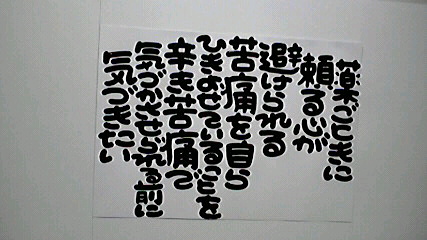 薬ごときに
頼る心が
避けられる
苦痛を自ら
ひきよせていることを
辛き苦痛で
気づかせられる前に
気づきたい